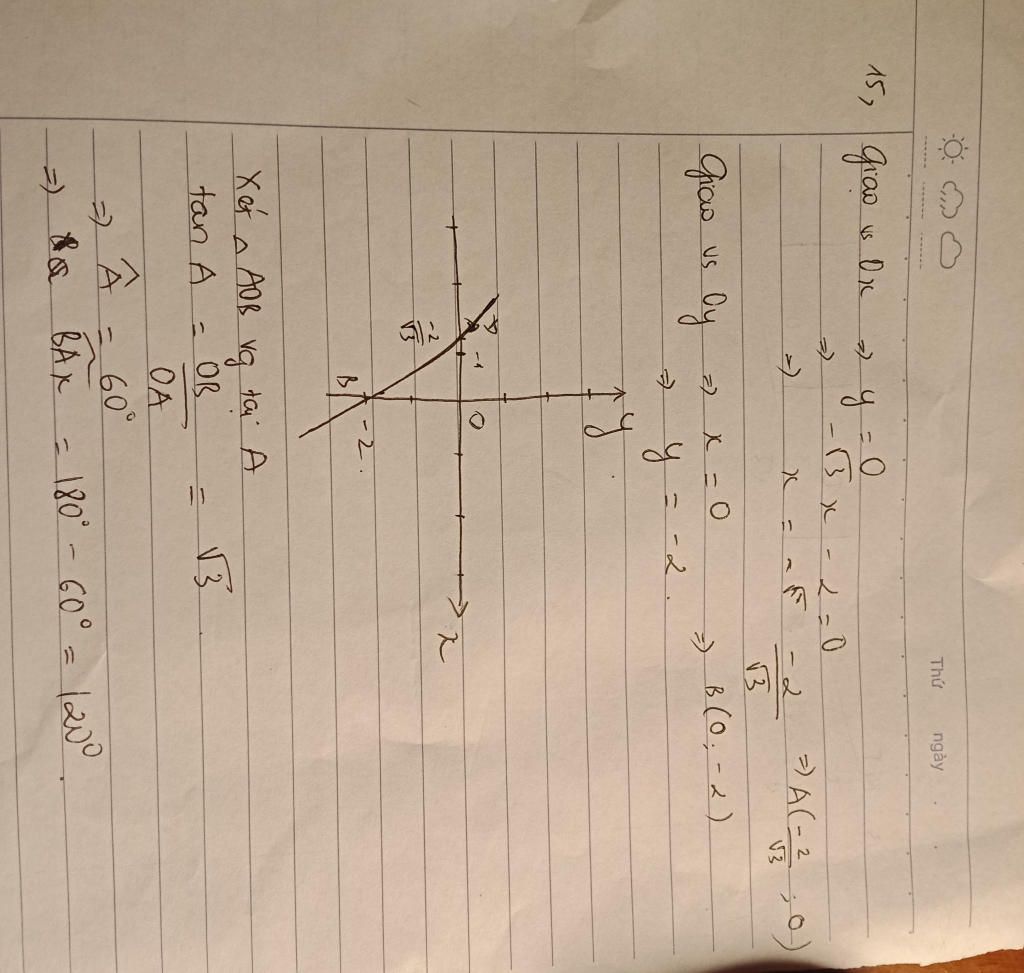 Thứ ngày
15,
Giao vs Ox => y = 0
=> -√3 x - 2 = 0
=> x = -2/√3 => A(-2/√3 ; 0)
Giao vs Oy => x = 0 => B(0; -2)
=> y = -2.
y
A
-1
O
x
-2/√3
B
-2.
Xét △ AOB vg tại A
tan A = OB/OA = √3.
=> Â = 60°
=> BAx = 180° - 60° = 120°.